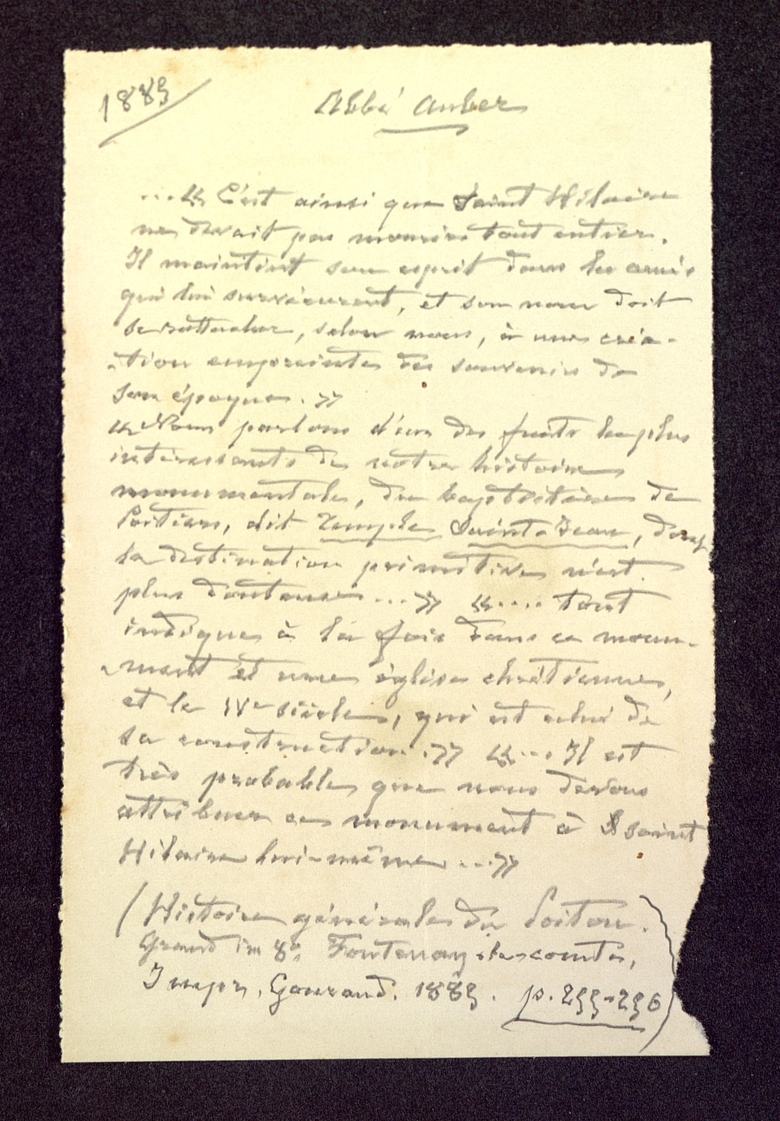 1889
Abbé Auber
... « C'est ainsi que Saint Hilaire
ne devait pas mourir tout entier.
Il maintint son esprit dans les amis
qui lui survécurent, et son nom doit
se rattacher, selon nous, à une créa-
-tion empreinte des souvenirs de
son époque. »
« Nous parlons d'un des faits les plus
intéressants de notre histoire
monumentale, du baptistère de
Poitiers, dit Temple Saint-Jean, dont
la destination primitive n'est
plus douteuse ... » « .... tout
indique à la fois dans ce monu-
-ment et une église chrétienne,
et le IVe siècle, qui est celui de
sa construction. » « ... Il est
très probable que nous devons
attribuer ce monument à saint
Hilaire lui-même ... »
(Histoire générale du Poitou.
Grand in 8°. Fontenay-le-comte,
Impr. Gouraud. 1889. p. 255-256)